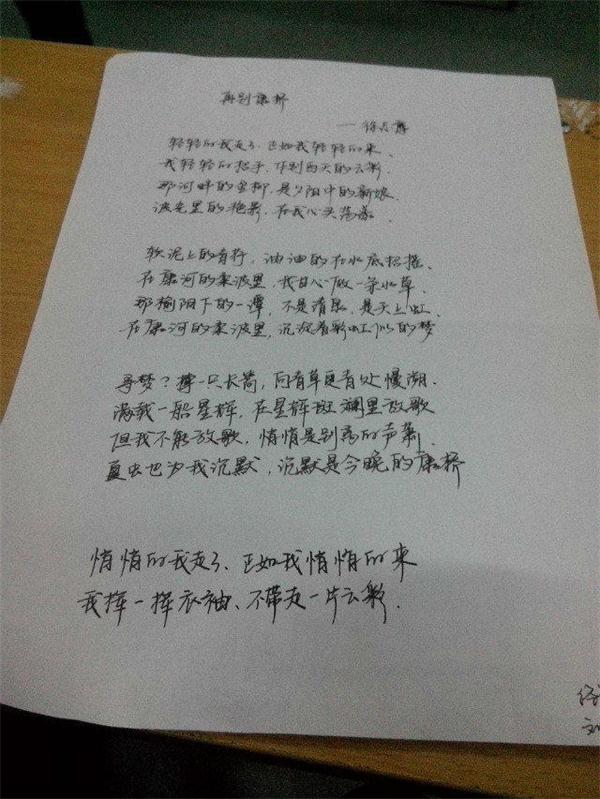 再别康桥
——徐志摩
轻轻的我走了、正如我轻轻的来、
我轻轻的招手、作别西天的云彩.
那河畔的金柳、是夕阳中的新娘
波光里的艳影、在我心头荡漾.
软泥上的青荇,油油的在水底招摇、
在康河的柔波里,我甘心做一条水草.
那榆阴下的一潭,不是清泉,是天上虹
在康河的柔波里,沉淀着彩虹似的梦
寻梦?撑一只长篙,向青草更青处慢溯.
满载一船星辉,在星辉斑斓里放歌
但我不能放歌,悄悄是别离的声箫.
夏虫也为我沉默,沉默是今晚的康桥
悄悄的我走了、正如我悄悄的来
我挥一挥衣袖、不带走一片云彩.